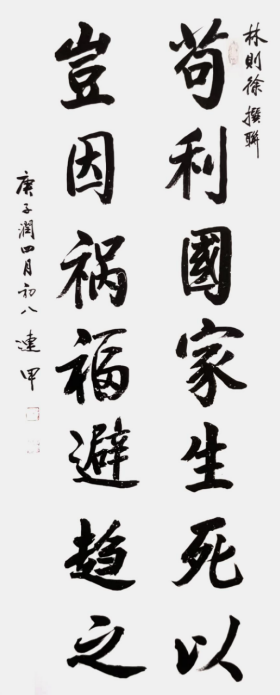 林則徐撰聯
苟利國家生死以
豈因祸福避趋之
庚子潤四月初八連甲